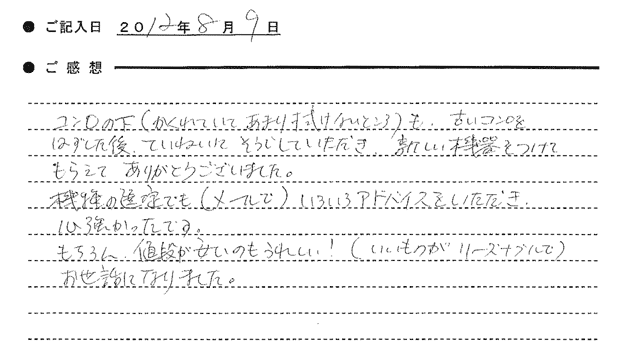 ● ご記入日 2012年8月9日
● ご感想
コンロの下(かくれていてあまり拭けないところ)も、古いコンロを
はずした後、ていねいにそうじしていただき、新しい機器をつけて
もらえて ありがとうございました。
機種の選定でも(メールで)いろいろアドバイスをいただき、
心強かったです。
もちろん、値段が安いのもうれしい!(いいものがリーズナブルで)
お世話になりました。